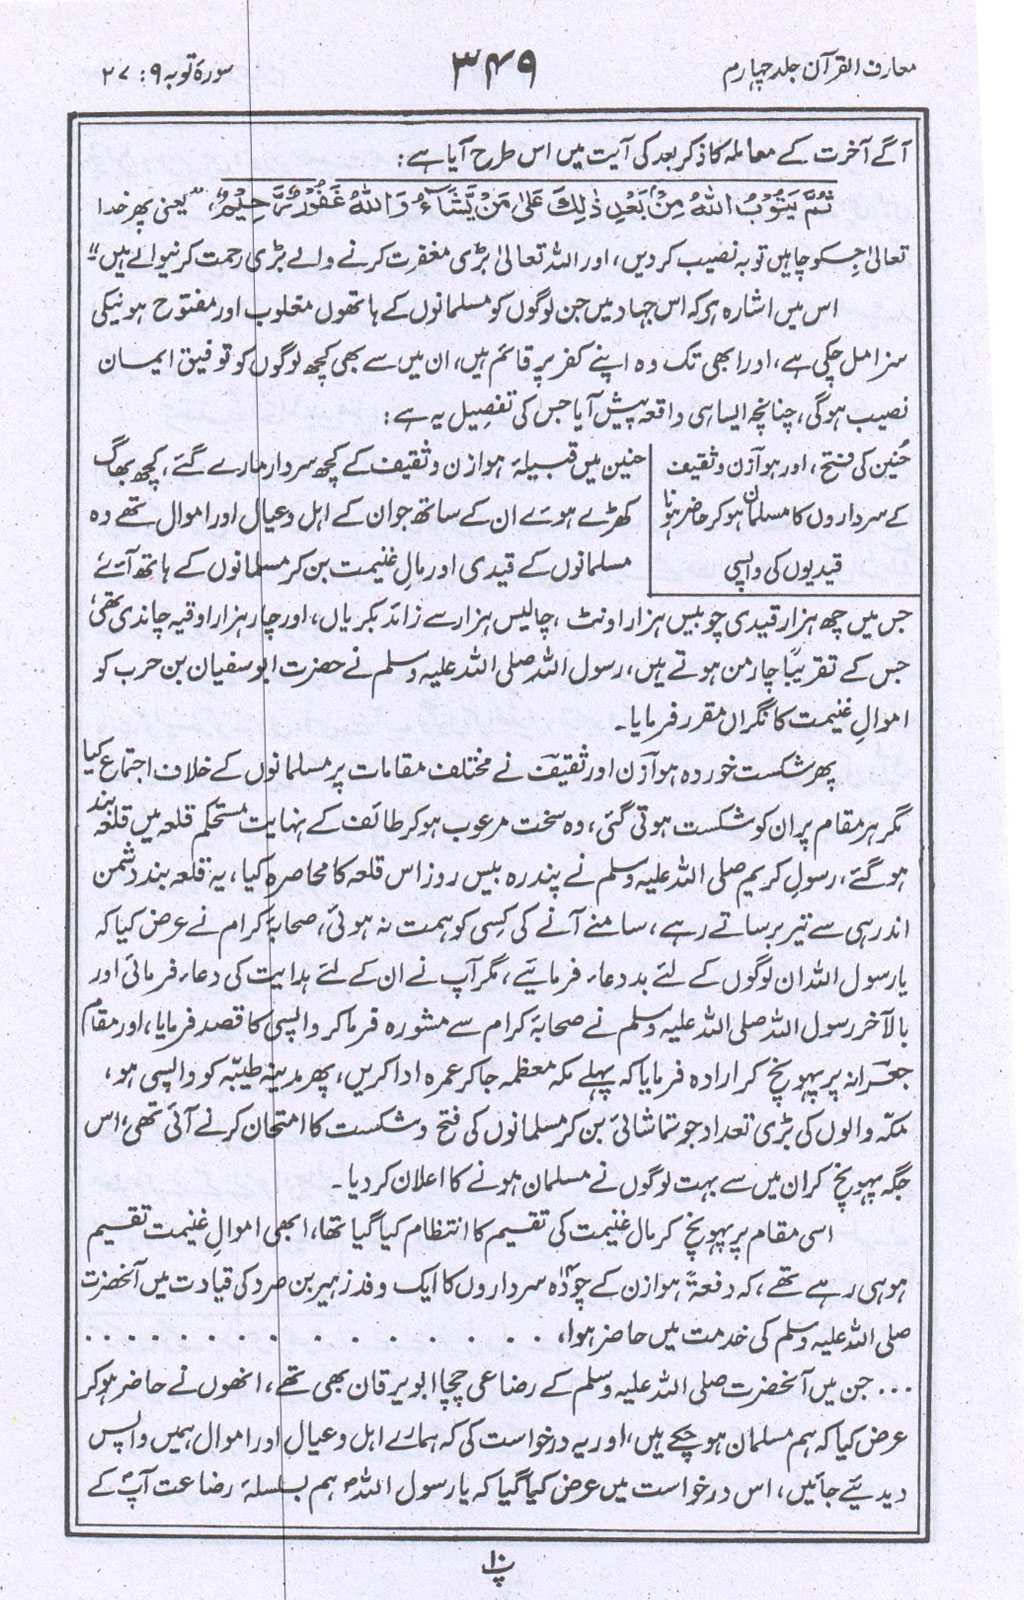 معارف القرآن جلد چہارم
۳۴۹
سورۂ توبہ ۹: ۲۷
آگے آخرت کے معاملہ کا ذکر بعد کی آیت میں اس طرح آیا ہے:
ثُمَّ يَتُوْبُ اللّٰهُ مِنْۢ بَعْدِ ذٰلِكَ عَلٰى مَنْ يَّشَآءُ وَاللّٰهُ غَفُوْرٌ رَّحِيْمٌ، ”یعنی پھر خدا
تعالیٰ جسکو چاہیں توبہ نصیب کردیں، اور اللہ تعالیٰ بڑی مغفرت کرنے والے بڑی رحمت کرنیوالے ہیں“
اس میں اشارہ ہو کہ اس جہاد میں جن لوگوں کو مسلمانوں کے ہاتھوں مغلوب اور مفتوح ہونیکی
سزا مل چکی ہے، اور ابھی تک وہ اپنے کفر پر قائم ہیں، ان میں سے بھی کچھ لوگوں کو توفیق ایمان
نصیب ہوگی، چنانچہ ایسا ہی واقعہ پیش آیا جس کی تفصیل یہ ہے:
حُنین کی فتح، اور ہوازن و ثقیف
کے سرداروں کا مسلمان ہوکر حاضر ہونا
قیدیوں کی واپسی
حنین میں قبیلۂ ہوازن و ثقیف کے کچھ سردار مارے گئے، کچھ بھاگ
کھڑے ہوئے ان کے ساتھ جو ان کے اہل و عیال اور اموال تھے وہ
مسلمانوں کے قیدی اور مالِ غنیمت بن کر مسلمانوں کے ہاتھ آئے
جس میں چھ ہزار قیدی چوبیس ہزار اونٹ، چالیس ہزار سے زائد بکریاں، اور چار ہزار اوقیہ چاندی تھی
جس کے تقریبًا چار من ہوتے ہیں، رسول اللہ صلی اللہ علیہ وسلم نے حضرت ابوسفیان بن حرب کو
اموالِ غنیمت کا نگراں مقرر فرمایا۔
پھر شکست خوردہ ہوازن اور ثقیف نے مختلف مقامات پر مسلمانوں کے خلاف اجتماع کیا
مگر ہر مقام پر ان کو شکست ہوتی گئی، وہ سخت مرعوب ہوکر طائف کے نہایت مستحکم قلعہ میں قلعہ بند
ہوگئے، رسولِ کریم صلی اللہ علیہ وسلم نے پندرہ بیس روز اس قلعہ کا محاصرہ کیا، یہ قلعہ بند دشمن
اندر ہی سے تیر برساتے رہے، سامنے آنے کی کسی کو ہمت نہ ہوئی، صحابۂ کرام نے عرض کیا کہ
یا رسول اللہ ان لوگوں کے لئے بددعاء فرمائیے، مگر آپ نے ان کے لئے ہدایت کی دعاء فرمائی اور
بالآخر رسول اللہ صلی اللہ علیہ وسلم نے صحابۂ کرام سے مشورہ فرماکر واپسی کا قصد فرمایا، اور مقام
جعرانہ پر پہونچ کر ارادہ فرمایا کہ پہلے مکہ معظمہ جاکر عمرہ ادا کریں، پھر مدینہ طیّبہ کو واپسی ہو،
مکّہ والوں کی بڑی تعداد جو تماشائی بن کر مسلمانوں کی فتح و شکست کا امتحان کرنے آئی تھی، اس
جگہ پہونچ کر ان میں سے بہت لوگوں نے مسلمان ہونے کا اعلان کردیا۔
اسی مقام پر پہونچ کر مال غنیمت کی تقسیم کا انتظام کیا گیا تھا، ابھی اموالِ غنیمت تقسیم
ہو ہی رہے تھے، کہ دفعۃً ہوازن کے چودہ ۱۴ سرداروں کا ایک وفد زہیر بن صرد کی قیادت میں آنحضرت
صلی اللہ علیہ وسلم کی خدمت میں حاضر ہوا، . . . . . . . . . . . . . . . . .
... جن میں آنحضرت صلی اللہ علیہ وسلم کے رضاعی چچا ابو یرقان بھی تھے، انھوں نے حاضر ہوکر
عرض کیا کہ ہم مسلمان ہوچکے ہیں، اور یہ درخواست کی کہ ہمارے اہل و عیال اور اموال ہمیں واپس
دیدیئے جائیں، اس درخواست میں عرض کیا گیا کہ یا رسول اللہ ہم بسلسلۂ رضاعت آپؐ کے
پ۱۰